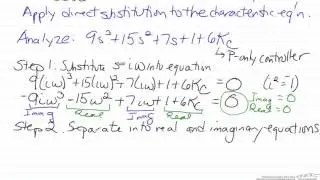 Apply direct substitution to the characteristic eq'n.
Analyze: 9s³+15s²+7s+1+6Kc
P-only controller
Step 1: Substitute s=iω into equation
9(iω)³+15(iω)²+7(iω)+1+6Kc = 0 (i²=-1)
-9iω³-15ω²+7iω+1+6Kc = 0 Imag = 0
Imag Real Imag Real Real = 0
Step 2. Separate into real and imaginary equations